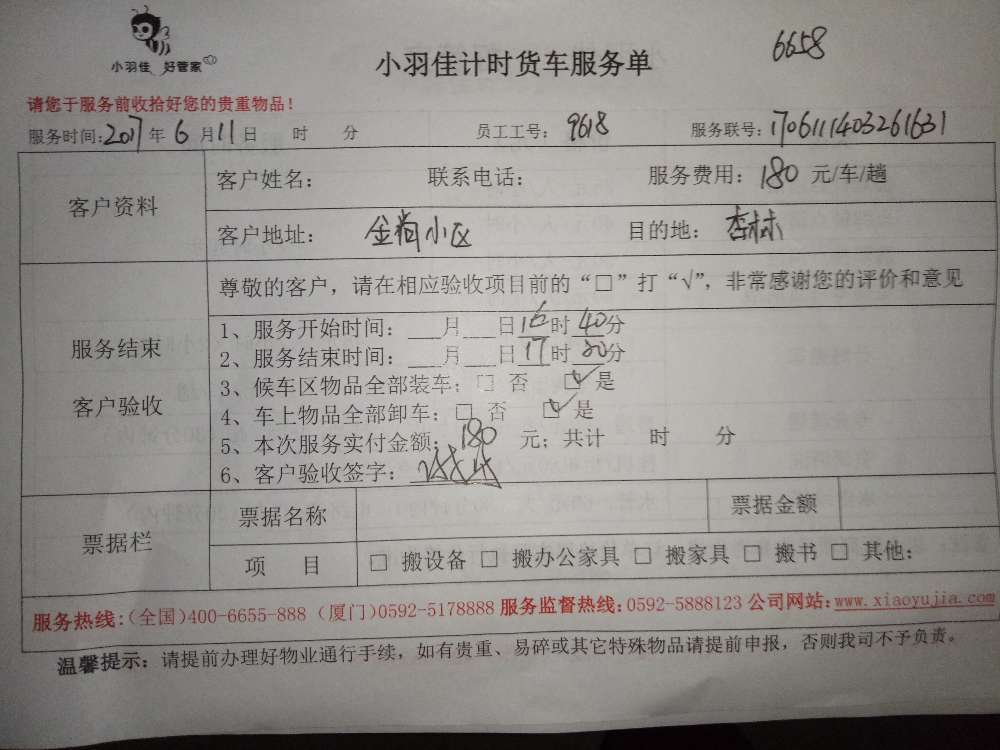 小羽佳 好管家
小羽佳计时货车服务单
6658
请您于服务前收拾好您的贵重物品！
服务时间:2017年6月11日 时 分 员工工号: 9618 服务联号:1706111403261631
客户资料
客户姓名： 联系电话： 服务费用：180 元/车/趟
客户地址： 金尚小区 目的地： 杏林
服务结束
客户验收
尊敬的客户，请在相应验收项目前的“□”打“√”，非常感谢您的评价和意见
1、服务开始时间：___月___日16时40分
2、服务结束时间：___月___日17时20分
3、候车区物品全部装车：□ 否 ☑ 是
4、车上物品全部卸车：□ 否 ☑ 是
5、本次服务实付金额：180 元；共计 时 分
6、客户验收签字：
票据栏
票据名称 票据金额
项 目 □ 搬设备 □ 搬办公家具 □ 搬家具 □ 搬书 □ 其他：
服务热线：(全国)400-6655-888 (厦门)0592-5178888 服务监督热线：0592-5888123 公司网站：www.xiaoyujia.com
温馨提示：请提前办理好物业通行手续，如有贵重、易碎或其它特殊物品请提前申报，否则我司不予负责。